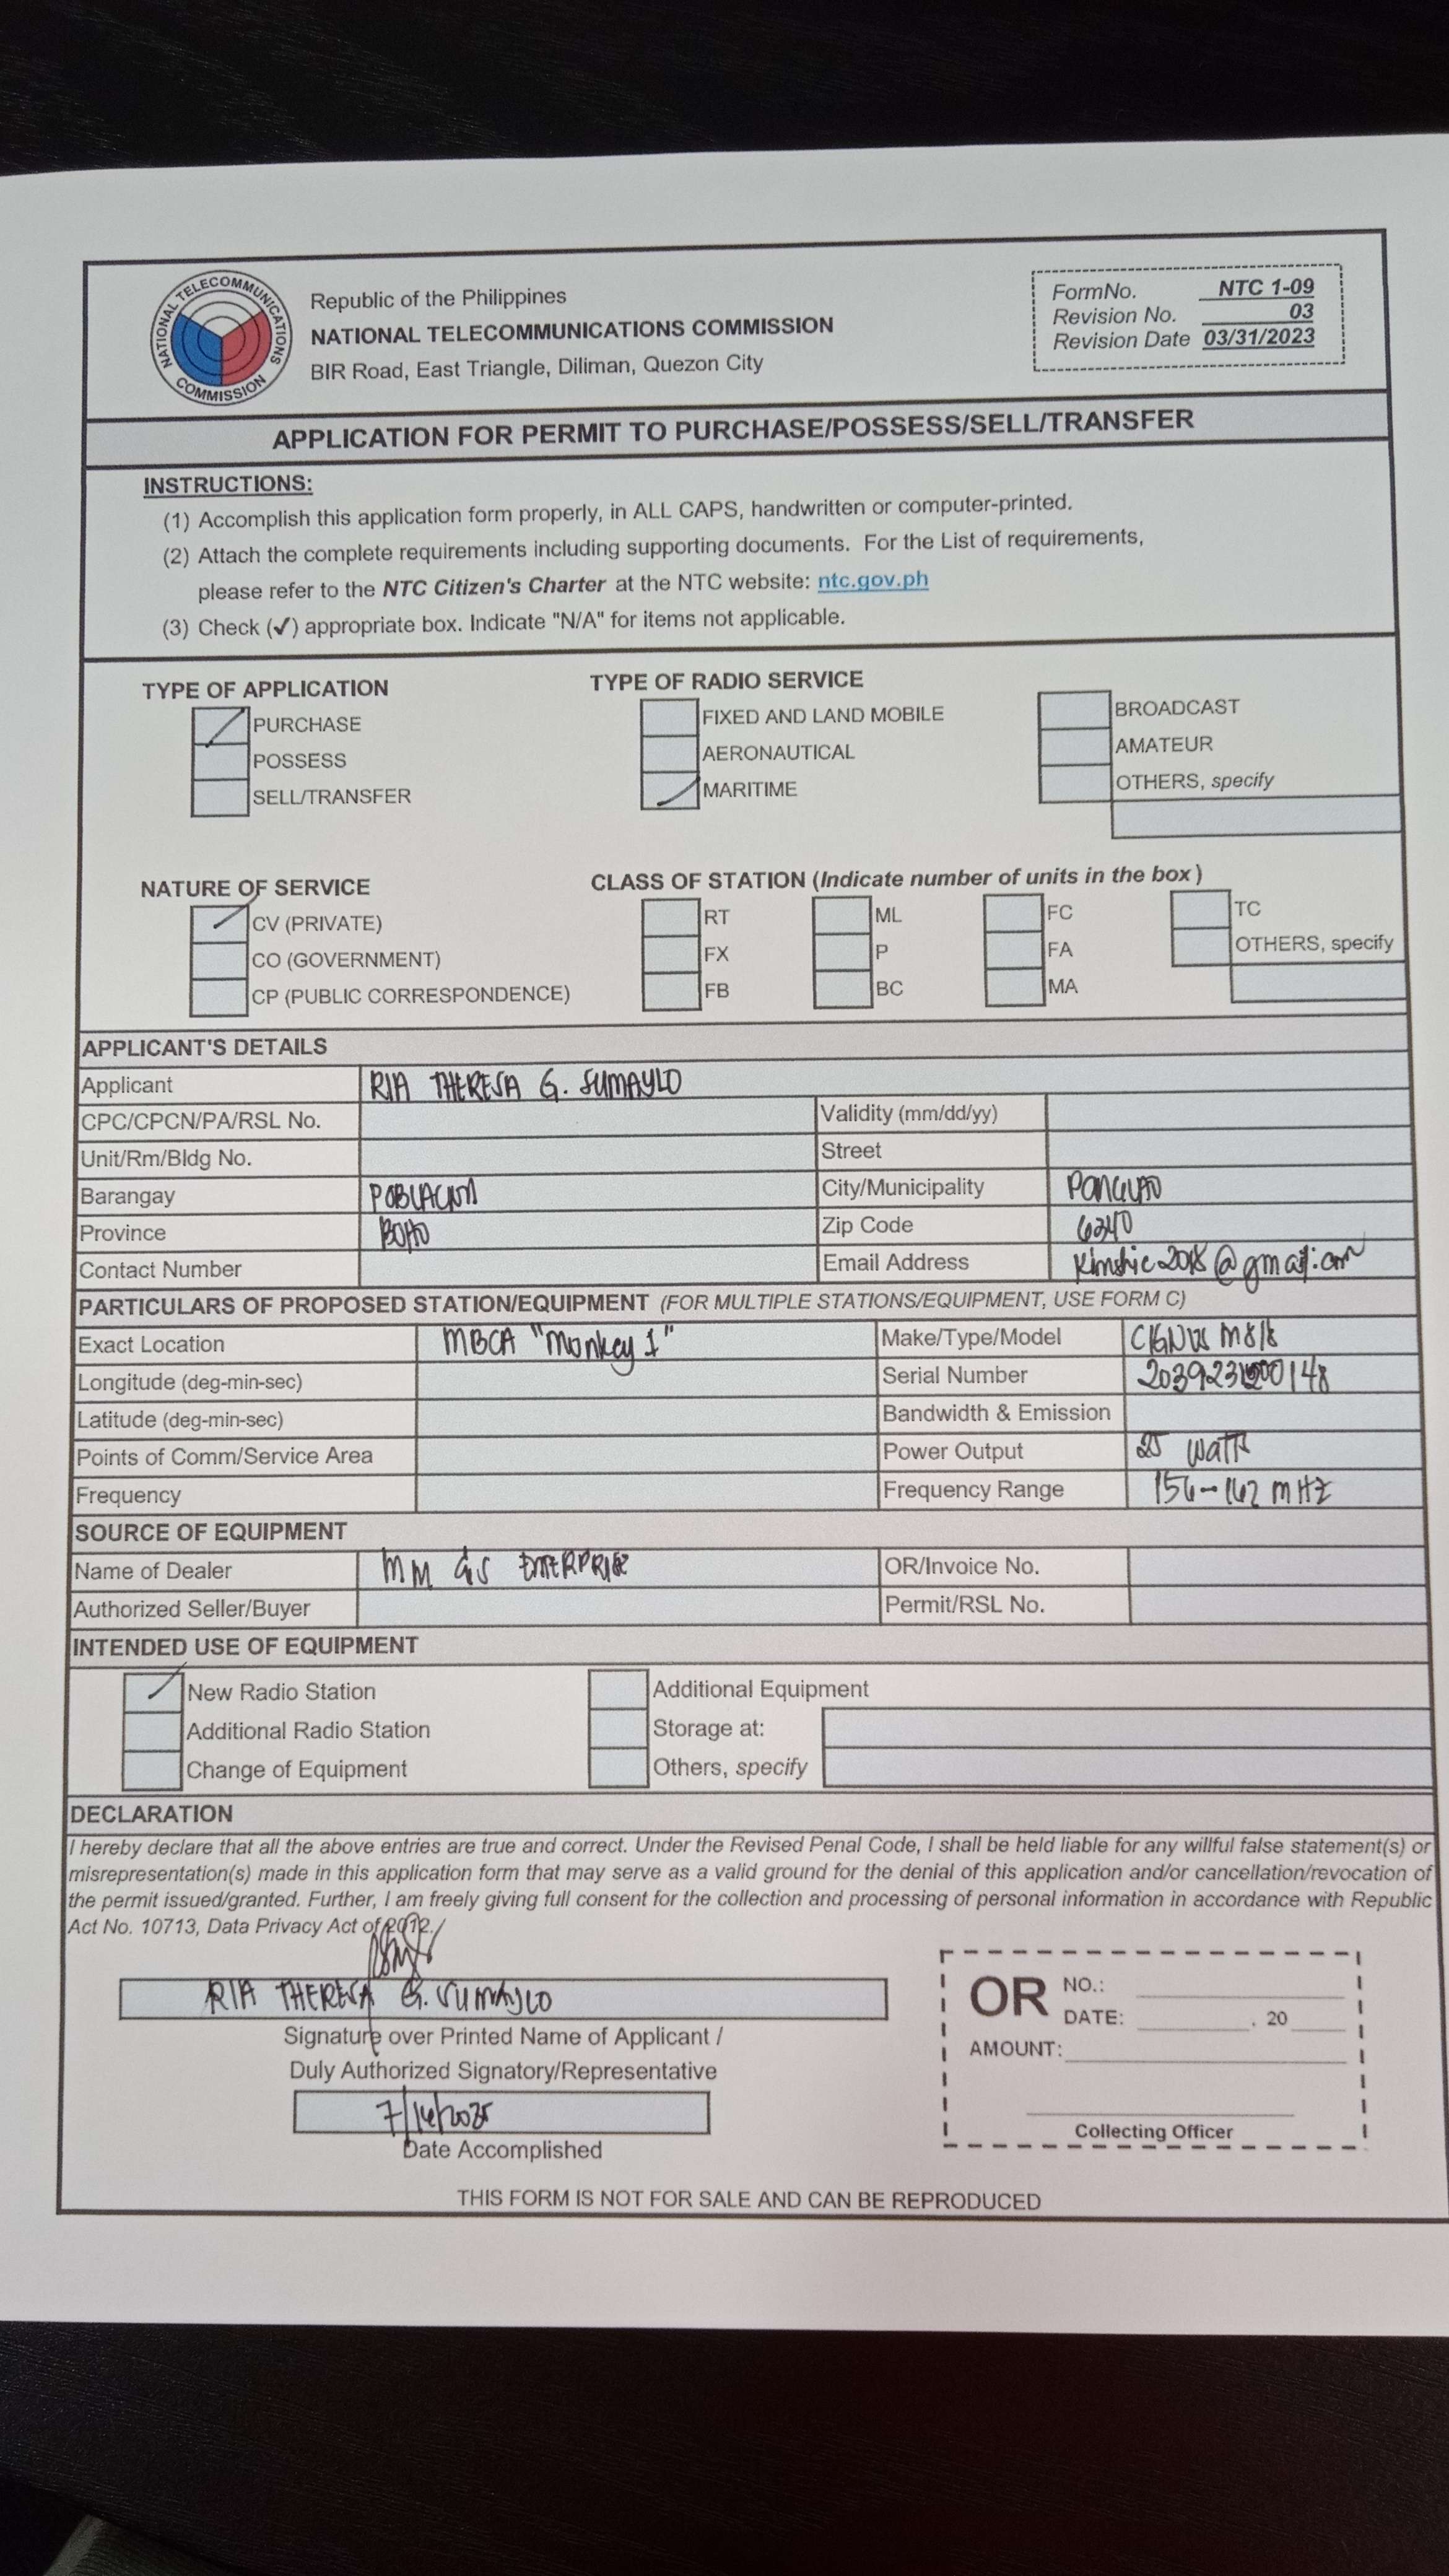 NATIONAL TELECOMMUNICATIONS COMMISSION
Republic of the Philippines
NATIONAL TELECOMMUNICATIONS COMMISSION
BIR Road, East Triangle, Diliman, Quezon City
FormNo. NTC 1-09
Revision No. 03
Revision Date 03/31/2023
APPLICATION FOR PERMIT TO PURCHASE/POSSESS/SELL/TRANSFER
INSTRUCTIONS:
(1) Accomplish this application form properly, in ALL CAPS, handwritten or computer-printed.
(2) Attach the complete requirements including supporting documents. For the List of requirements,
please refer to the NTC Citizen's Charter at the NTC website: ntc.gov.ph
(3) Check (✓) appropriate box. Indicate "N/A" for items not applicable.
TYPE OF APPLICATION
PURCHASE
POSSESS
SELL/TRANSFER
TYPE OF RADIO SERVICE
FIXED AND LAND MOBILE
AERONAUTICAL
MARITIME
BROADCAST
AMATEUR
OTHERS, specify
NATURE OF SERVICE
CV (PRIVATE)
CO (GOVERNMENT)
CP (PUBLIC CORRESPONDENCE)
CLASS OF STATION (Indicate number of units in the box)
RT ML FC TC
FX P FA OTHERS, specify
FB BC MA
APPLICANT'S DETAILS
Applicant RIA THERESA G. SUMAYLO
CPC/CPCN/PA/RSL No. Validity (mm/dd/yy)
Unit/Rm/Bldg No. Street
Barangay City/Municipality
Province Zip Code 6340
Contact Number Email Address
PARTICULARS OF PROPOSED STATION/EQUIPMENT (FOR MULTIPLE STATIONS/EQUIPMENT, USE FORM C)
Exact Location MBCA "Monkey 1" Make/Type/Model
Longitude (deg-min-sec) Serial Number
Latitude (deg-min-sec) Bandwidth & Emission
Points of Comm/Service Area Power Output 25 watts
Frequency Frequency Range MHZ
SOURCE OF EQUIPMENT
Name of Dealer MM ENTERPRISE OR/Invoice No.
Authorized Seller/Buyer Permit/RSL No.
INTENDED USE OF EQUIPMENT
New Radio Station Additional Equipment
Additional Radio Station Storage at:
Change of Equipment Others, specify
DECLARATION
I hereby declare that all the above entries are true and correct. Under the Revised Penal Code, I shall be held liable for any willful false statement(s) or
misrepresentation(s) made in this application form that may serve as a valid ground for the denial of this application and/or cancellation/revocation of
the permit issued/granted. Further, I am freely giving full consent for the collection and processing of personal information in accordance with Republic
Act No. 10713, Data Privacy Act of 2012.
RIA THERESA G. SUMAYLO
Signature over Printed Name of Applicant /
Duly Authorized Signatory/Representative
Date Accomplished
OR NO.:
DATE: , 20
AMOUNT:
Collecting Officer
THIS FORM IS NOT FOR SALE AND CAN BE REPRODUCED